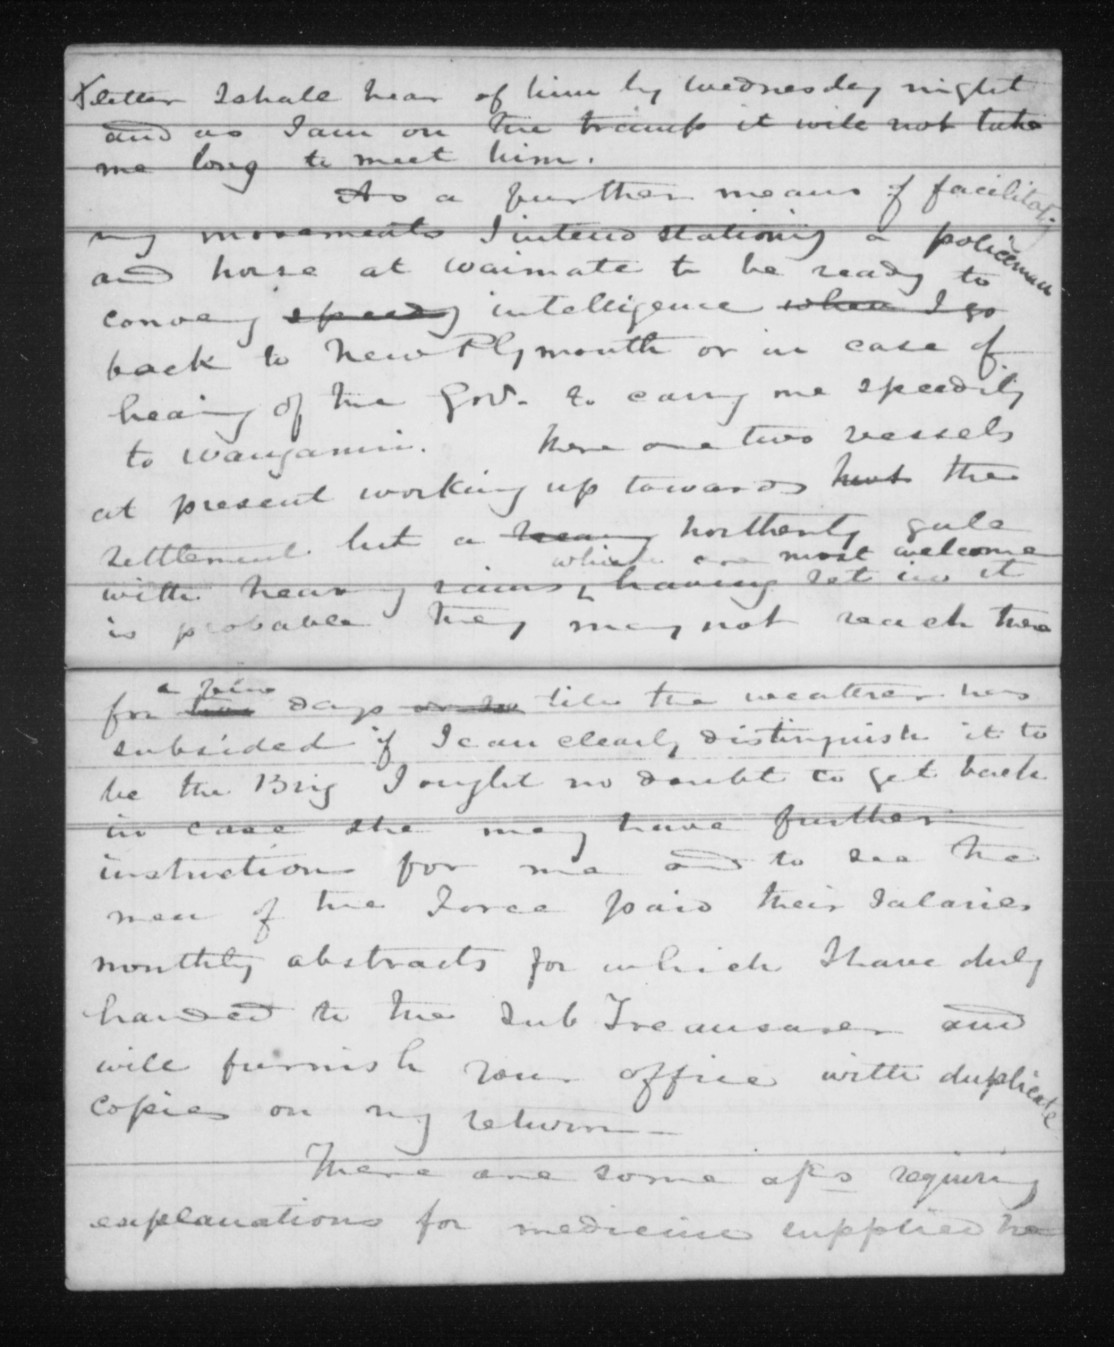 letter I shall hear of him by Wednesday night
and as I am on the tramp it will not take
me long to meet him.
As a further means of facilitatg
my movements I intend stationing a policeman
and horse at Waimate to be ready to
convey speedy intelligence when I go
back to New Plymouth or in case of
hearing of the Govr. to carry me speedily
to Wanganui. There are two vessels
at present working up towards the
settlement but a heavy northerly gale
which are most welcome
with heavy rains having set in it
is probable they may not reach there
a few
for two days or so till the weather has
subsided if I can clearly distinguish it to
be the Brig I ought no doubt to get back
in case she may have further
instructions for me and to see the
men of the Force paid their Salaries
monthly abstracts for which I have duly
handed to the Sub Treasurer and
will furnish your office with duplicate
copies on my return
There are some requiring
explanations for medicine supplied